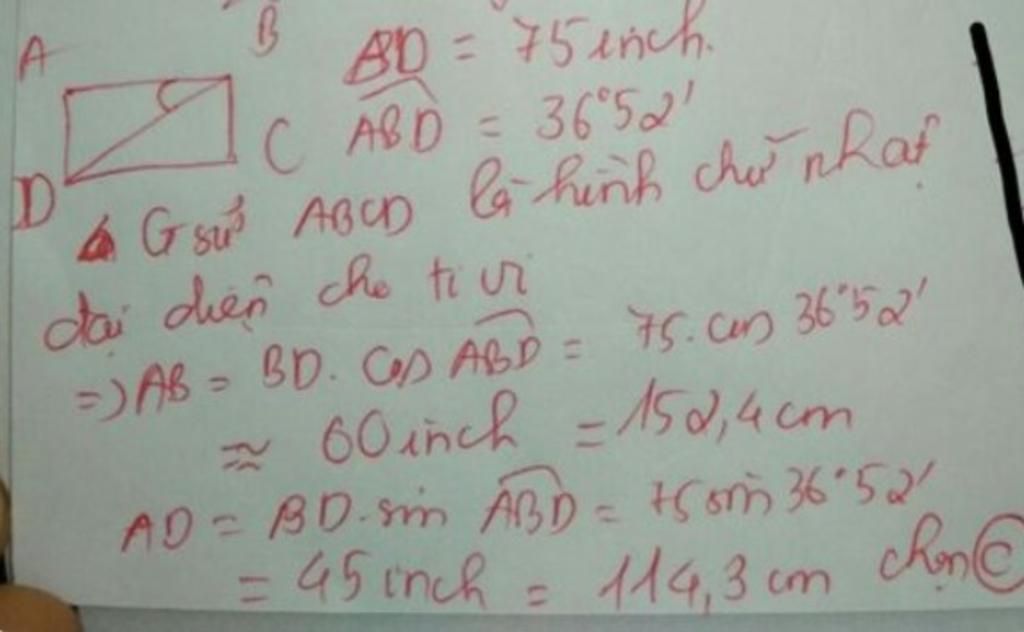 A B BD = 75 inch.
C ABD = 36°52'
D G sử ABCD là hình chữ nhật
đại diện cho ti vi
=> AB = BD. cos ABD = 75. cos 36°52'
≈ 60 inch = 152,4 cm
AD = BD. sin ABD = 75 sin 36°52'
= 45 inch = 114,3 cm chọn C